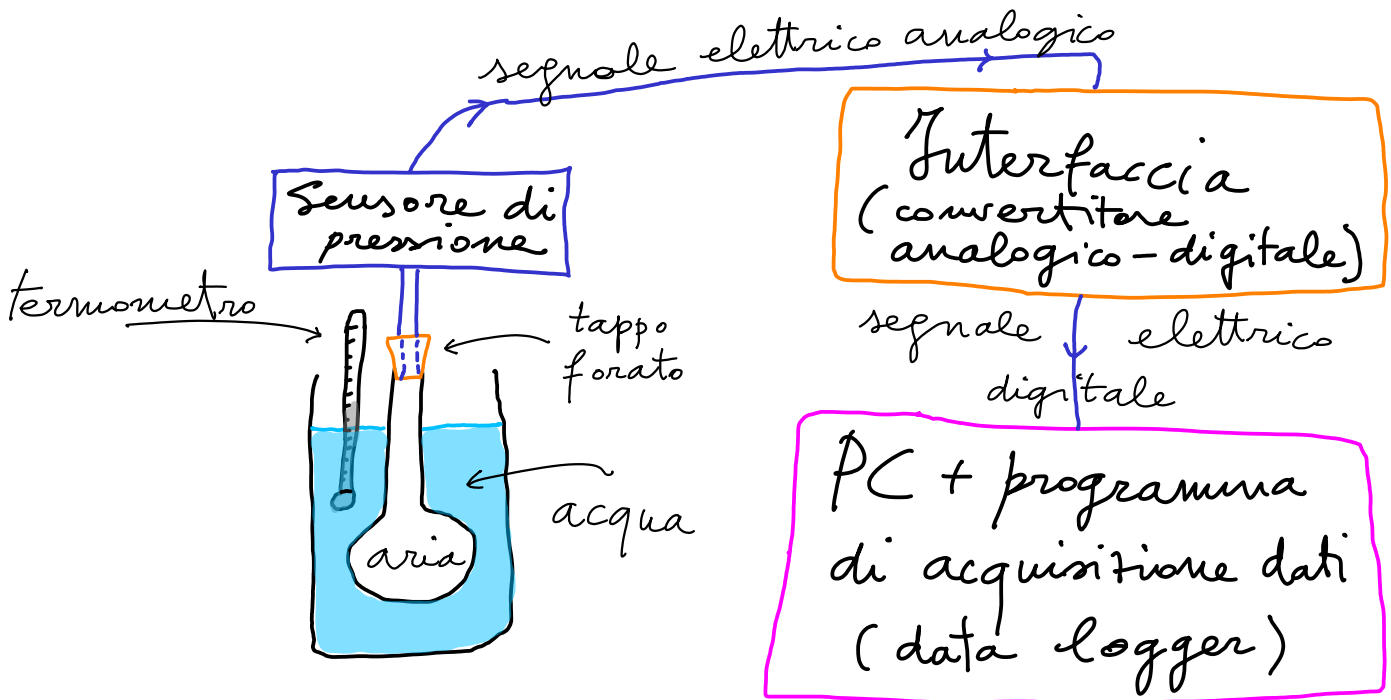 segnale elettrico analogico
Sensore di
pressione
Interfaccia
(convertitore
analogico-digitale)
termometro
tappo
forato
segnale elettrico
digitale
acqua
aria
PC + programma
di acquisizione dati
(data logger)